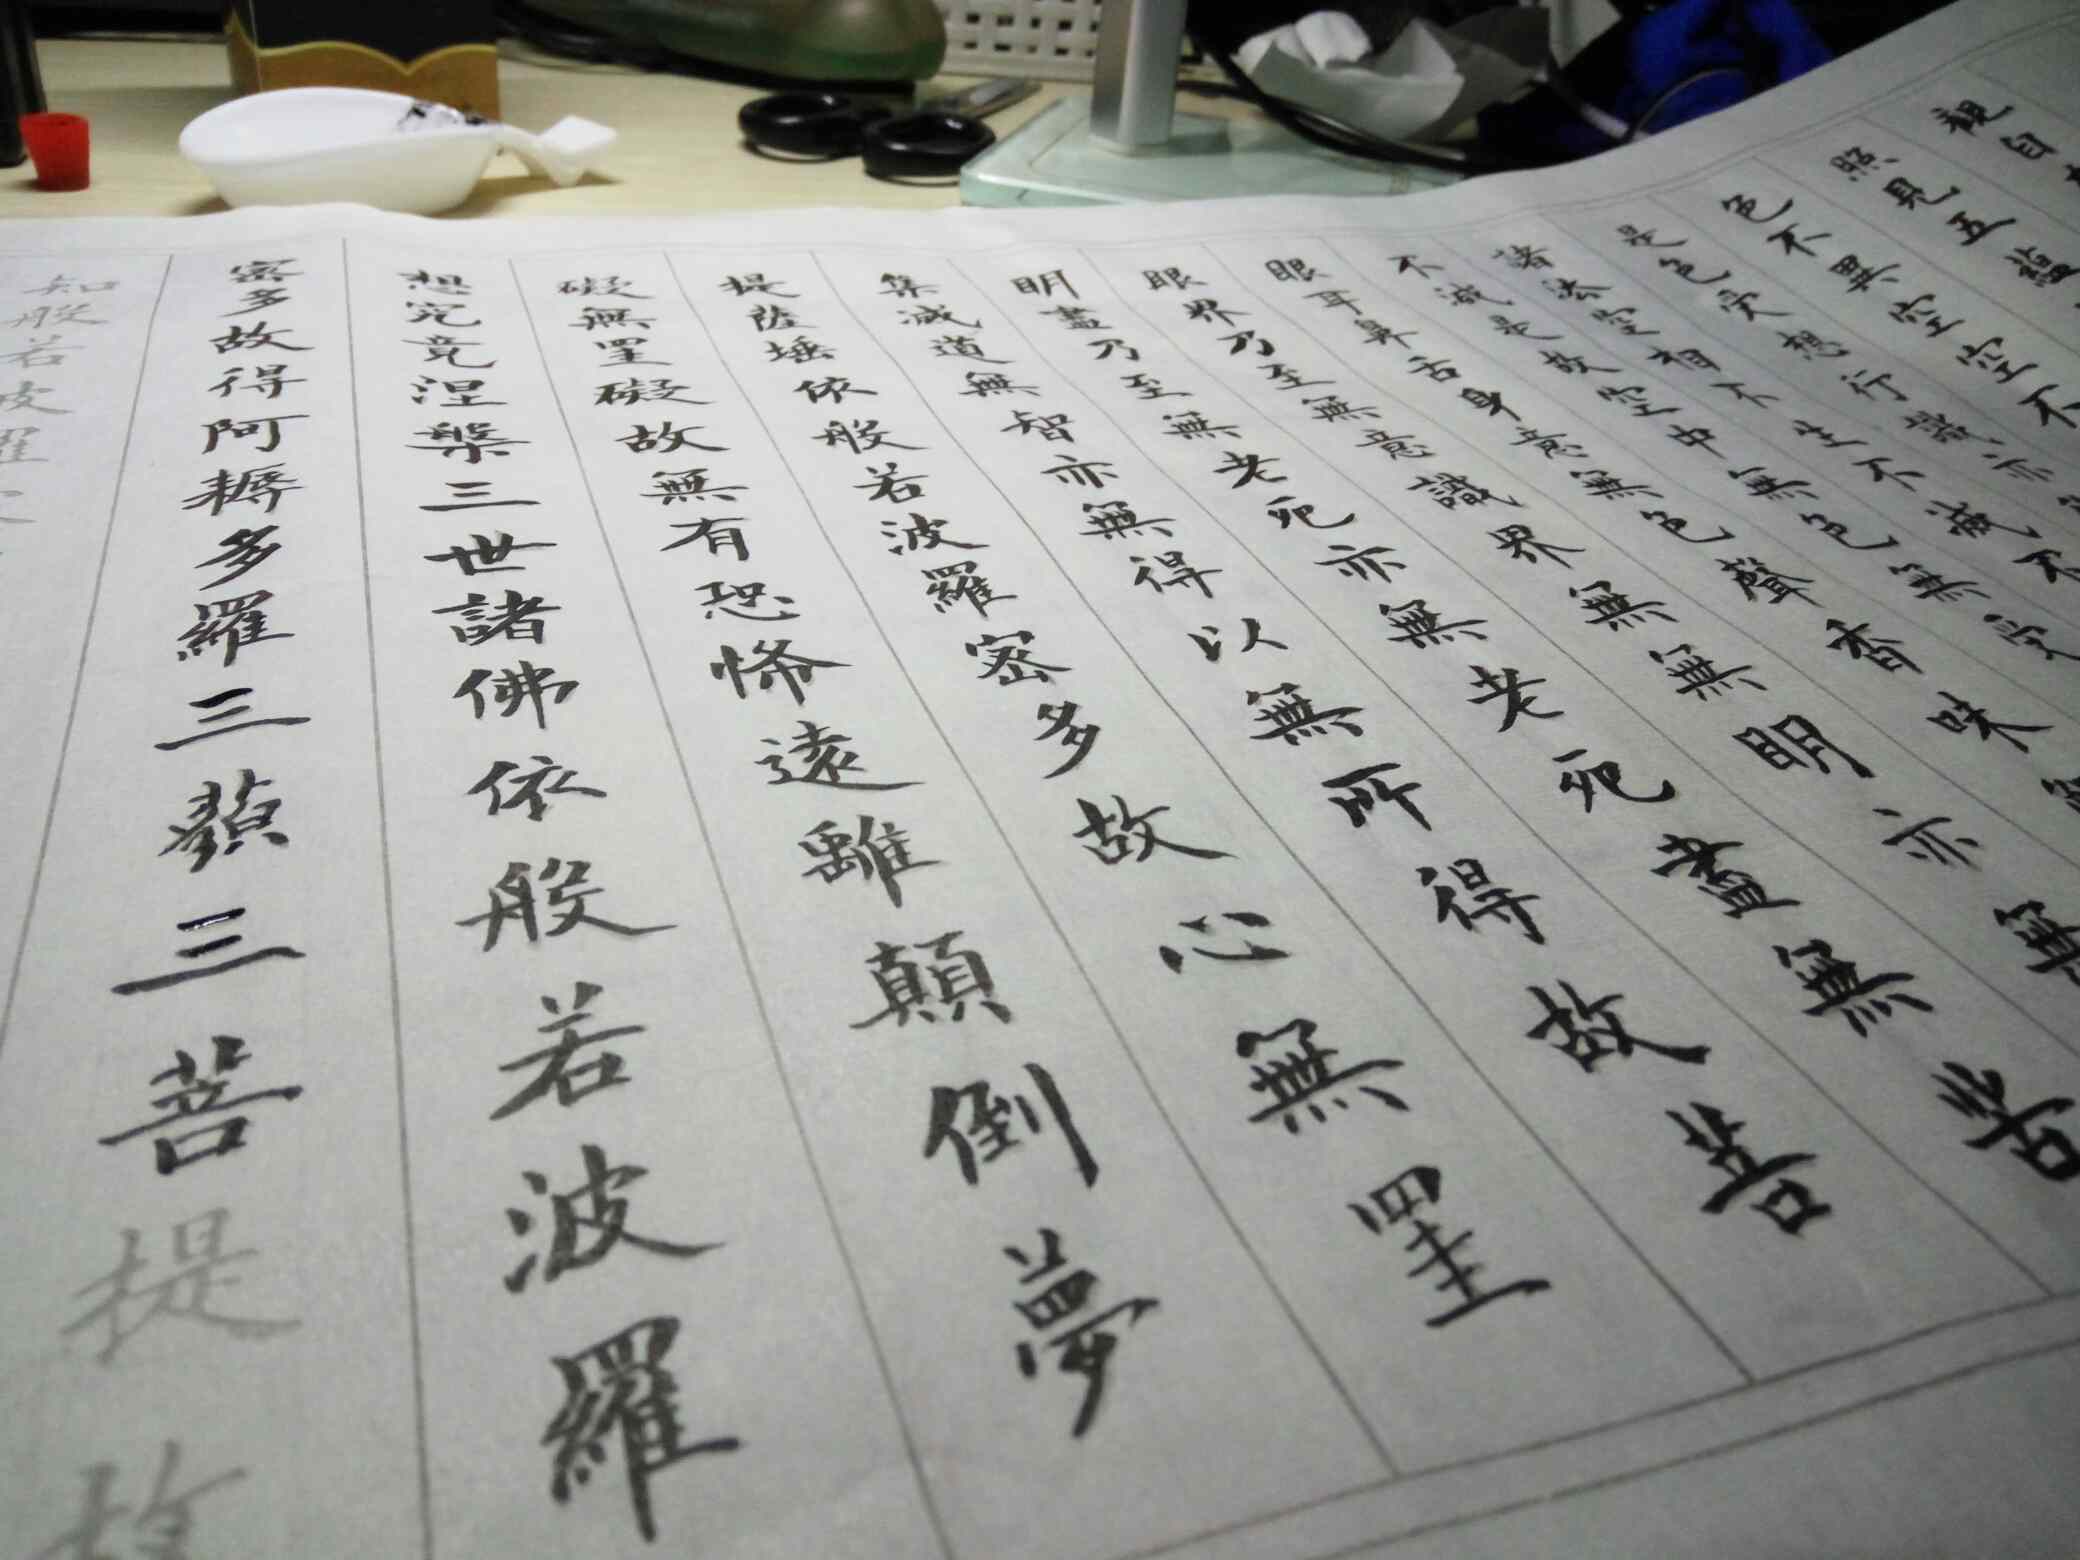 觀自
照見五蘊
色不異空空不
是色受想行識亦
諸法空相不生不滅不
不減是故空中無色無受
眼耳鼻舌身意無色聲香味
眼界乃至無意識界無無明亦無
明盡乃至無老死亦無老死盡無苦
集滅道無智亦無得以無所得故菩
提薩埵依般若波羅密多故心無罣
礙無罣礙故無有恐怖遠離顛倒夢
想究竟涅槃三世諸佛依般若波羅
密多故得阿耨多羅三藐三菩提故
知般若波羅